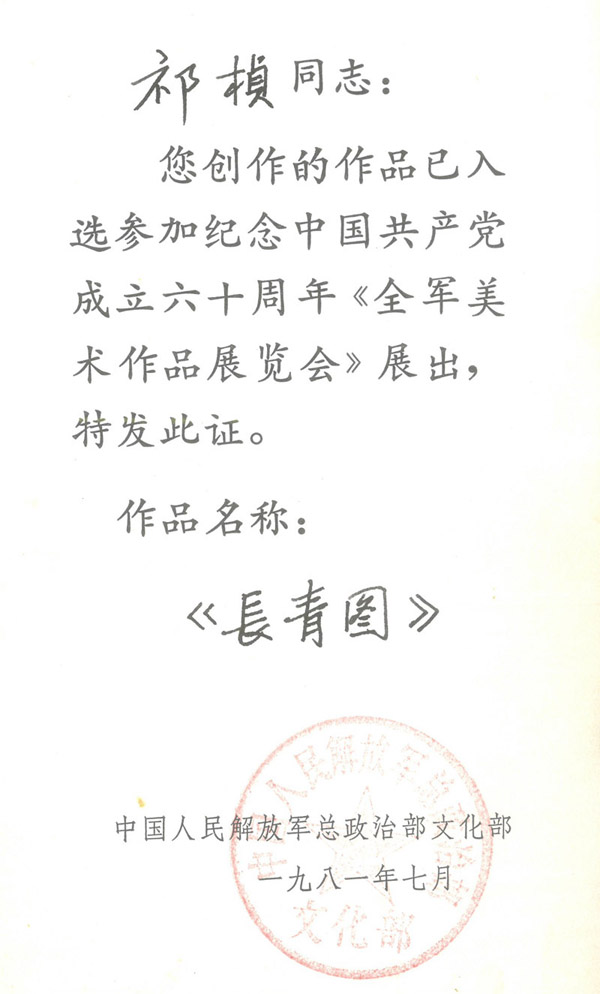 祁楨同志：
您创作的作品已入
选参加纪念中国共产党
成立六十周年《全军美
术作品展览会》展出，
特发此证。
作品名称：
《長青图》
中国人民解放军总政治部文化部
一九八一年七月
中国人民解放军总政治部
文化部